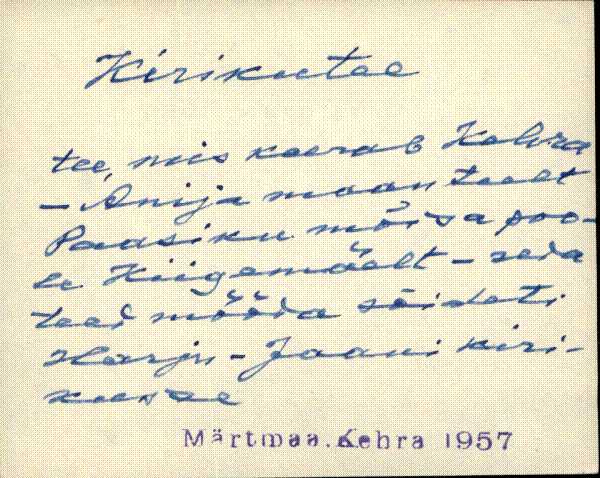 Kirikutee
tee, mis keerab Kehra
- Anija maanteelt
Paasiku mõisa poo-
le Kiigemäelt - seda
teed mööda sõideti
Harju-Jaani kiri-
kusse
Märtmaa. Kehra 1957